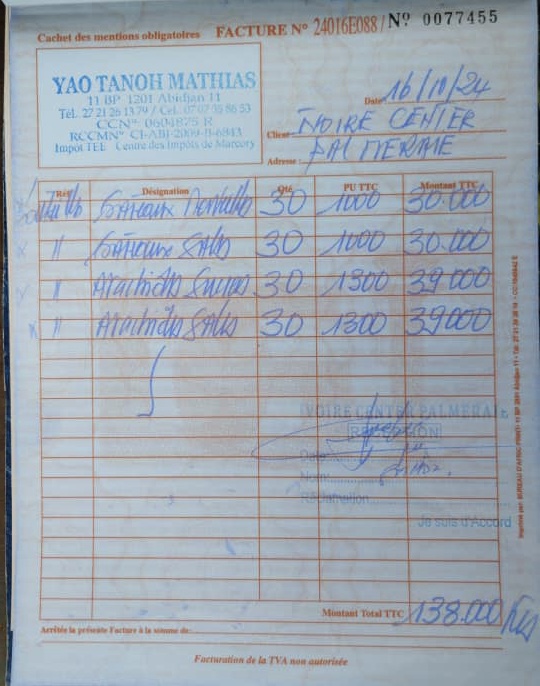 Cachet des mentions obligatoires FACTURE N° 24016E088 / N° 0077455
YAO TANOH MATHIAS
11 BP 1201 Abidjan 11
Tél. 27 21 26 13 79 / Cel. 07 07 35 86 53
CCN° 0604825 R
RCCMN° CI-ABJ-2009-B-6843
Impôt TEE Centre des Impôts de Marcory
Date 16/10/24
Client IVOIRE CENTER
Adresse : PALMERAIE
Réf. Désignation Qté PU TTC Montant TTC
Gâteaux 30 1000 30.000
" Gâteaux Salés 30 1000 30.000
" Arachides Sucrées 30 1300 39 000
" Arachides Salés 30 1300 39000
IVOIRE CENTER PALMERAIE
RECEPTION
Date:
Nom:
Réclamation
Je suis d'Accord
Montant Total TTC 138.000 Frs
Arrêtée la présente Facture à la somme de:
Facturation de la TVA non autorisée